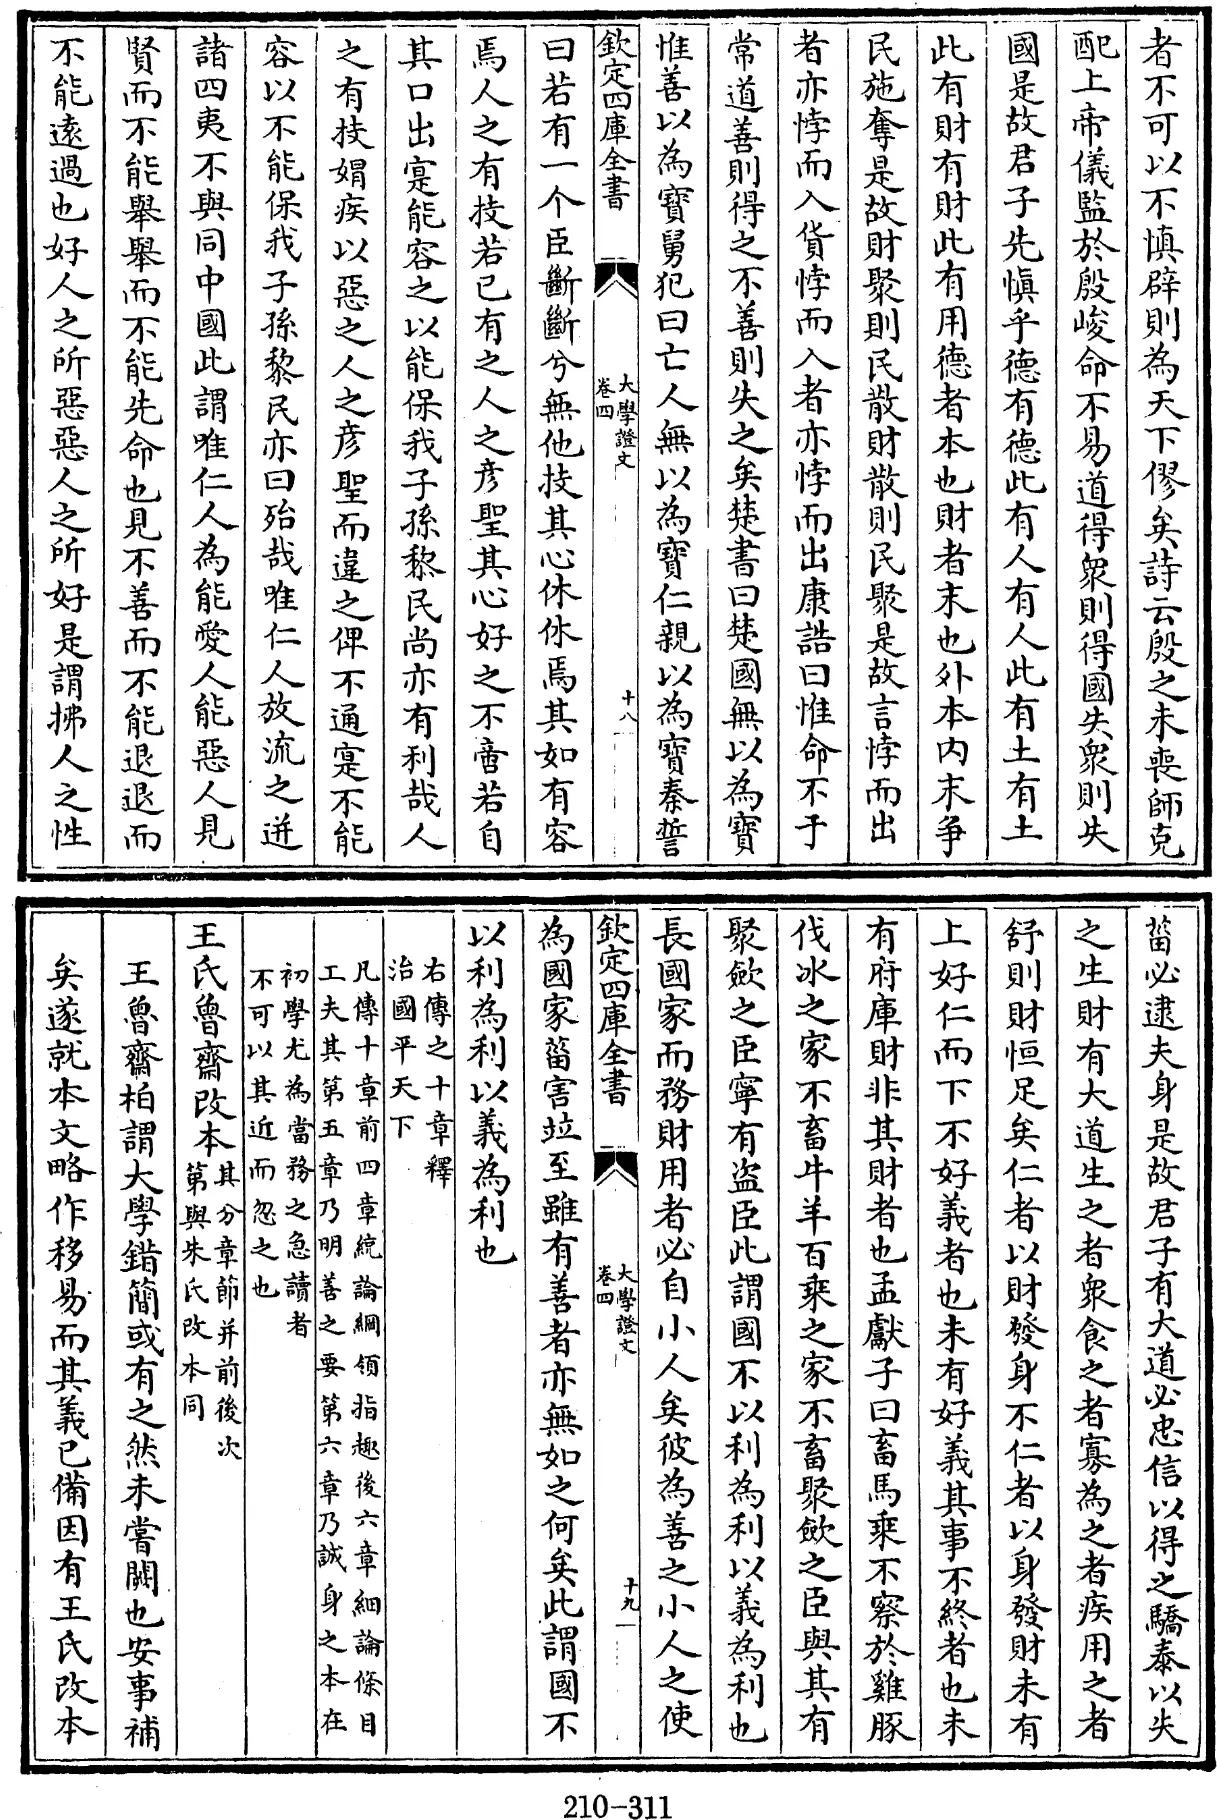 者不可以不慎辟則為天下僇矣詩云殷之未喪師克
配上帝儀監於殷峻命不易道得衆則得國失衆則失
國是故君子先愼乎德有德此有人有人此有土有土
此有財有財此有用德者本也財者末也外本內末争
民施奪是故財聚則民散財散則民聚是故言悖而出
者亦悖而入貨悖而入者亦悖而出康誥曰惟命不于
常道善則得之不善則失之矣楚書曰楚國無以為寶
惟善以為寶舅犯曰亡人無以為寶仁親以為寶秦誓
欽定四庫全書
大學證文
卷四
十八
曰若有一个臣斷斷兮無他技其心休休焉其如有容
焉人之有技若已有之人之彦聖其心好之不啻若自
其口出寔能容之以能保我子孫黎民尚亦有利哉人
之有技媢疾以惡之人之彦聖而違之俾不通寔不能
容以不能保我子孫黎民亦曰殆哉唯仁人放流之迸
諸四夷不與同中國此謂唯仁人為能愛人能惡人見
賢而不能舉舉而不能先命也見不善而不能退退而
不能遠過也好人之所惡惡人之所好是謂拂人之性
菑必逮夫身是故君子有大道必忠信以得之驕泰以失
之生財有大道生之者衆食之者寡為之者疾用之者
舒則財恒足矣仁者以財發身不仁者以身發財未有
上好仁而下不好義者也未有好義其事不終者也未
有府庫財非其財者也孟獻子曰畜馬乘不察於雞豚
伐冰之家不畜牛羊百乘之家不畜聚斂之臣與其有
聚斂之臣寧有盗臣此謂國不以利為利以義為利也
長國家而務財用者必自小人矣彼為善之小人之使
欽定四庫全書
大學證文
卷四
十九
為國家菑害竝至雖有善者亦無如之何矣此謂國不
以利為利以義為利也
右傳之十章釋
治國平天下
凡傳十章前四章統論綱領指趣後六章細論條目
工夫其第五章乃明善之要第六章乃誠身之本在
初學尤為當務之急讀者
不可以其近而忽之也
王氏魯齋改本
其分章節并前後次
第與朱氏改本同
王魯齋柏謂大學錯簡或有之然未嘗闕也安事補
矣遂就本文略作移易而其義已備因有王氏改本
210-311